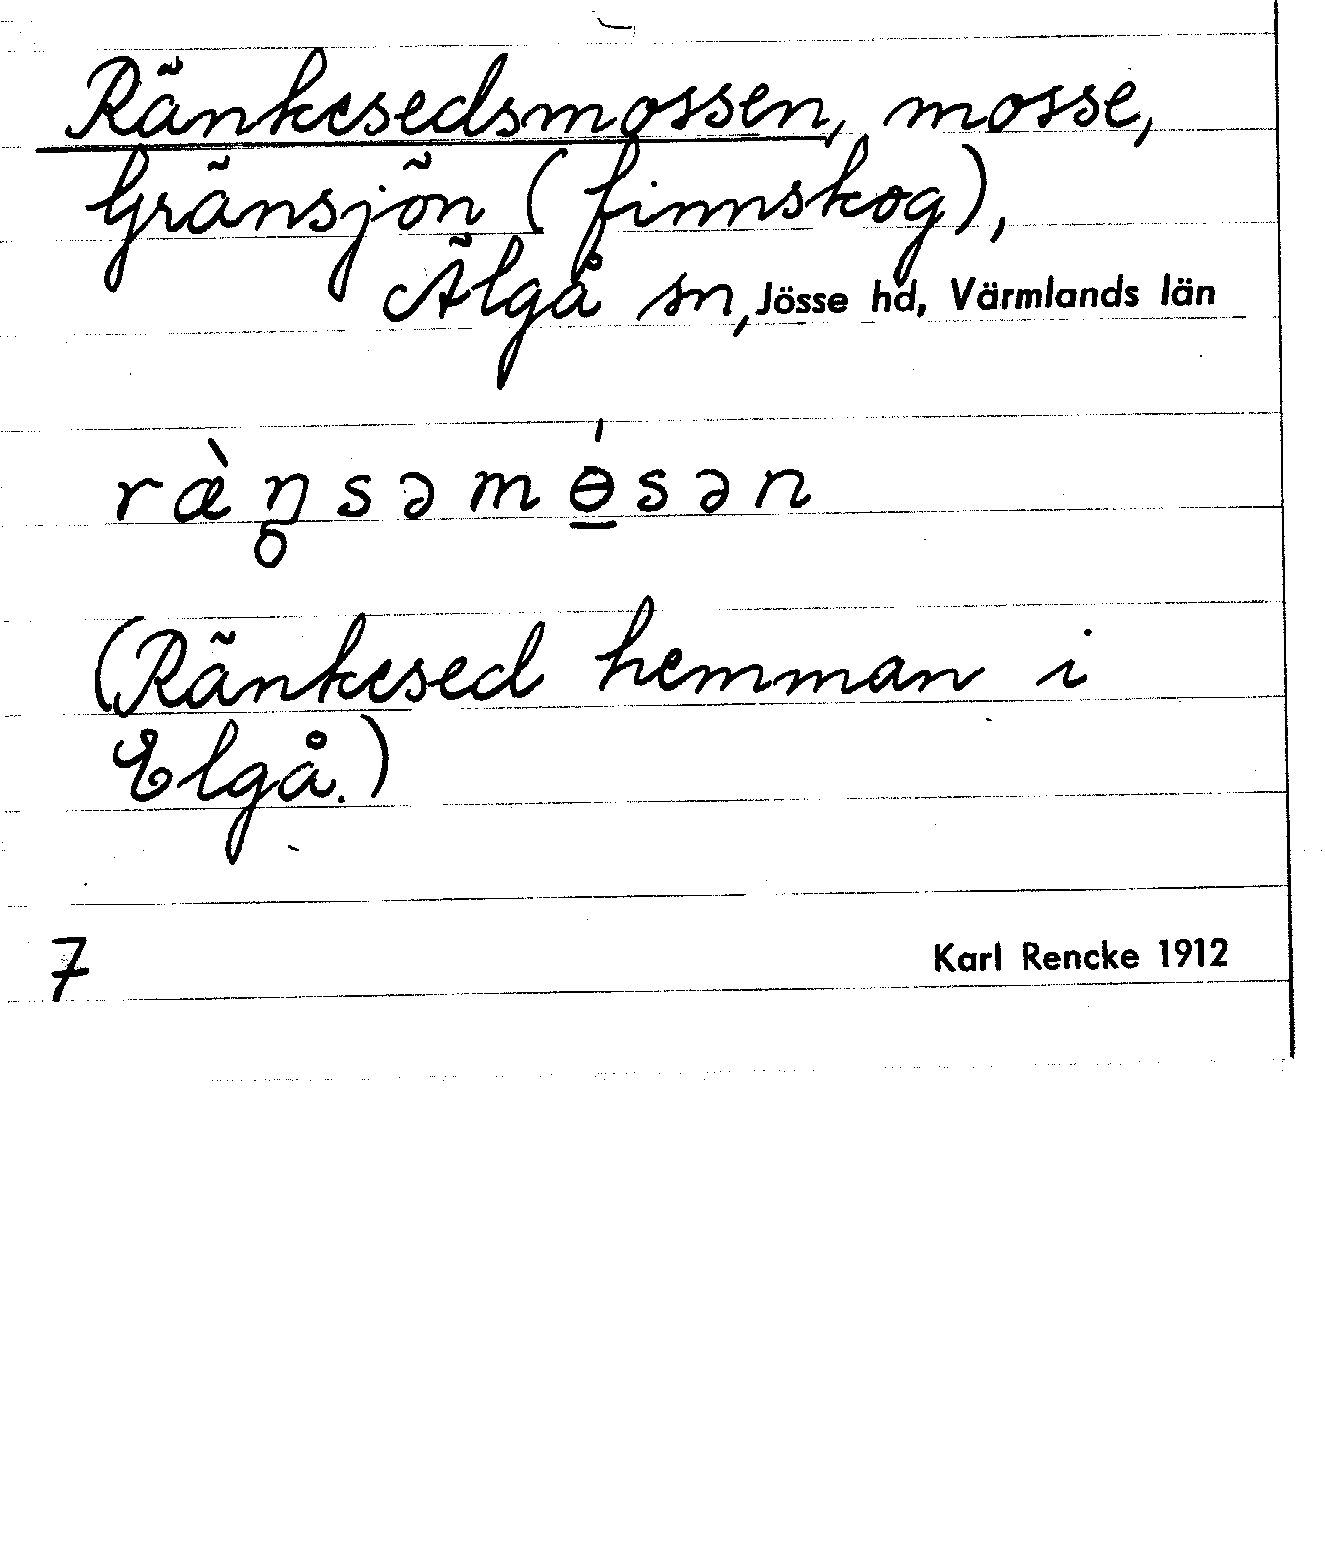 Ränkesedsmossen, mosse,
Gränsjön (finnskog),
Älgå sn, Jösse hd, Värmlands län
ræ̀ŋ̥səmɵ̲́sən
(Ränkesed hemman i
Elgå.)
7
Karl Rencke 1912